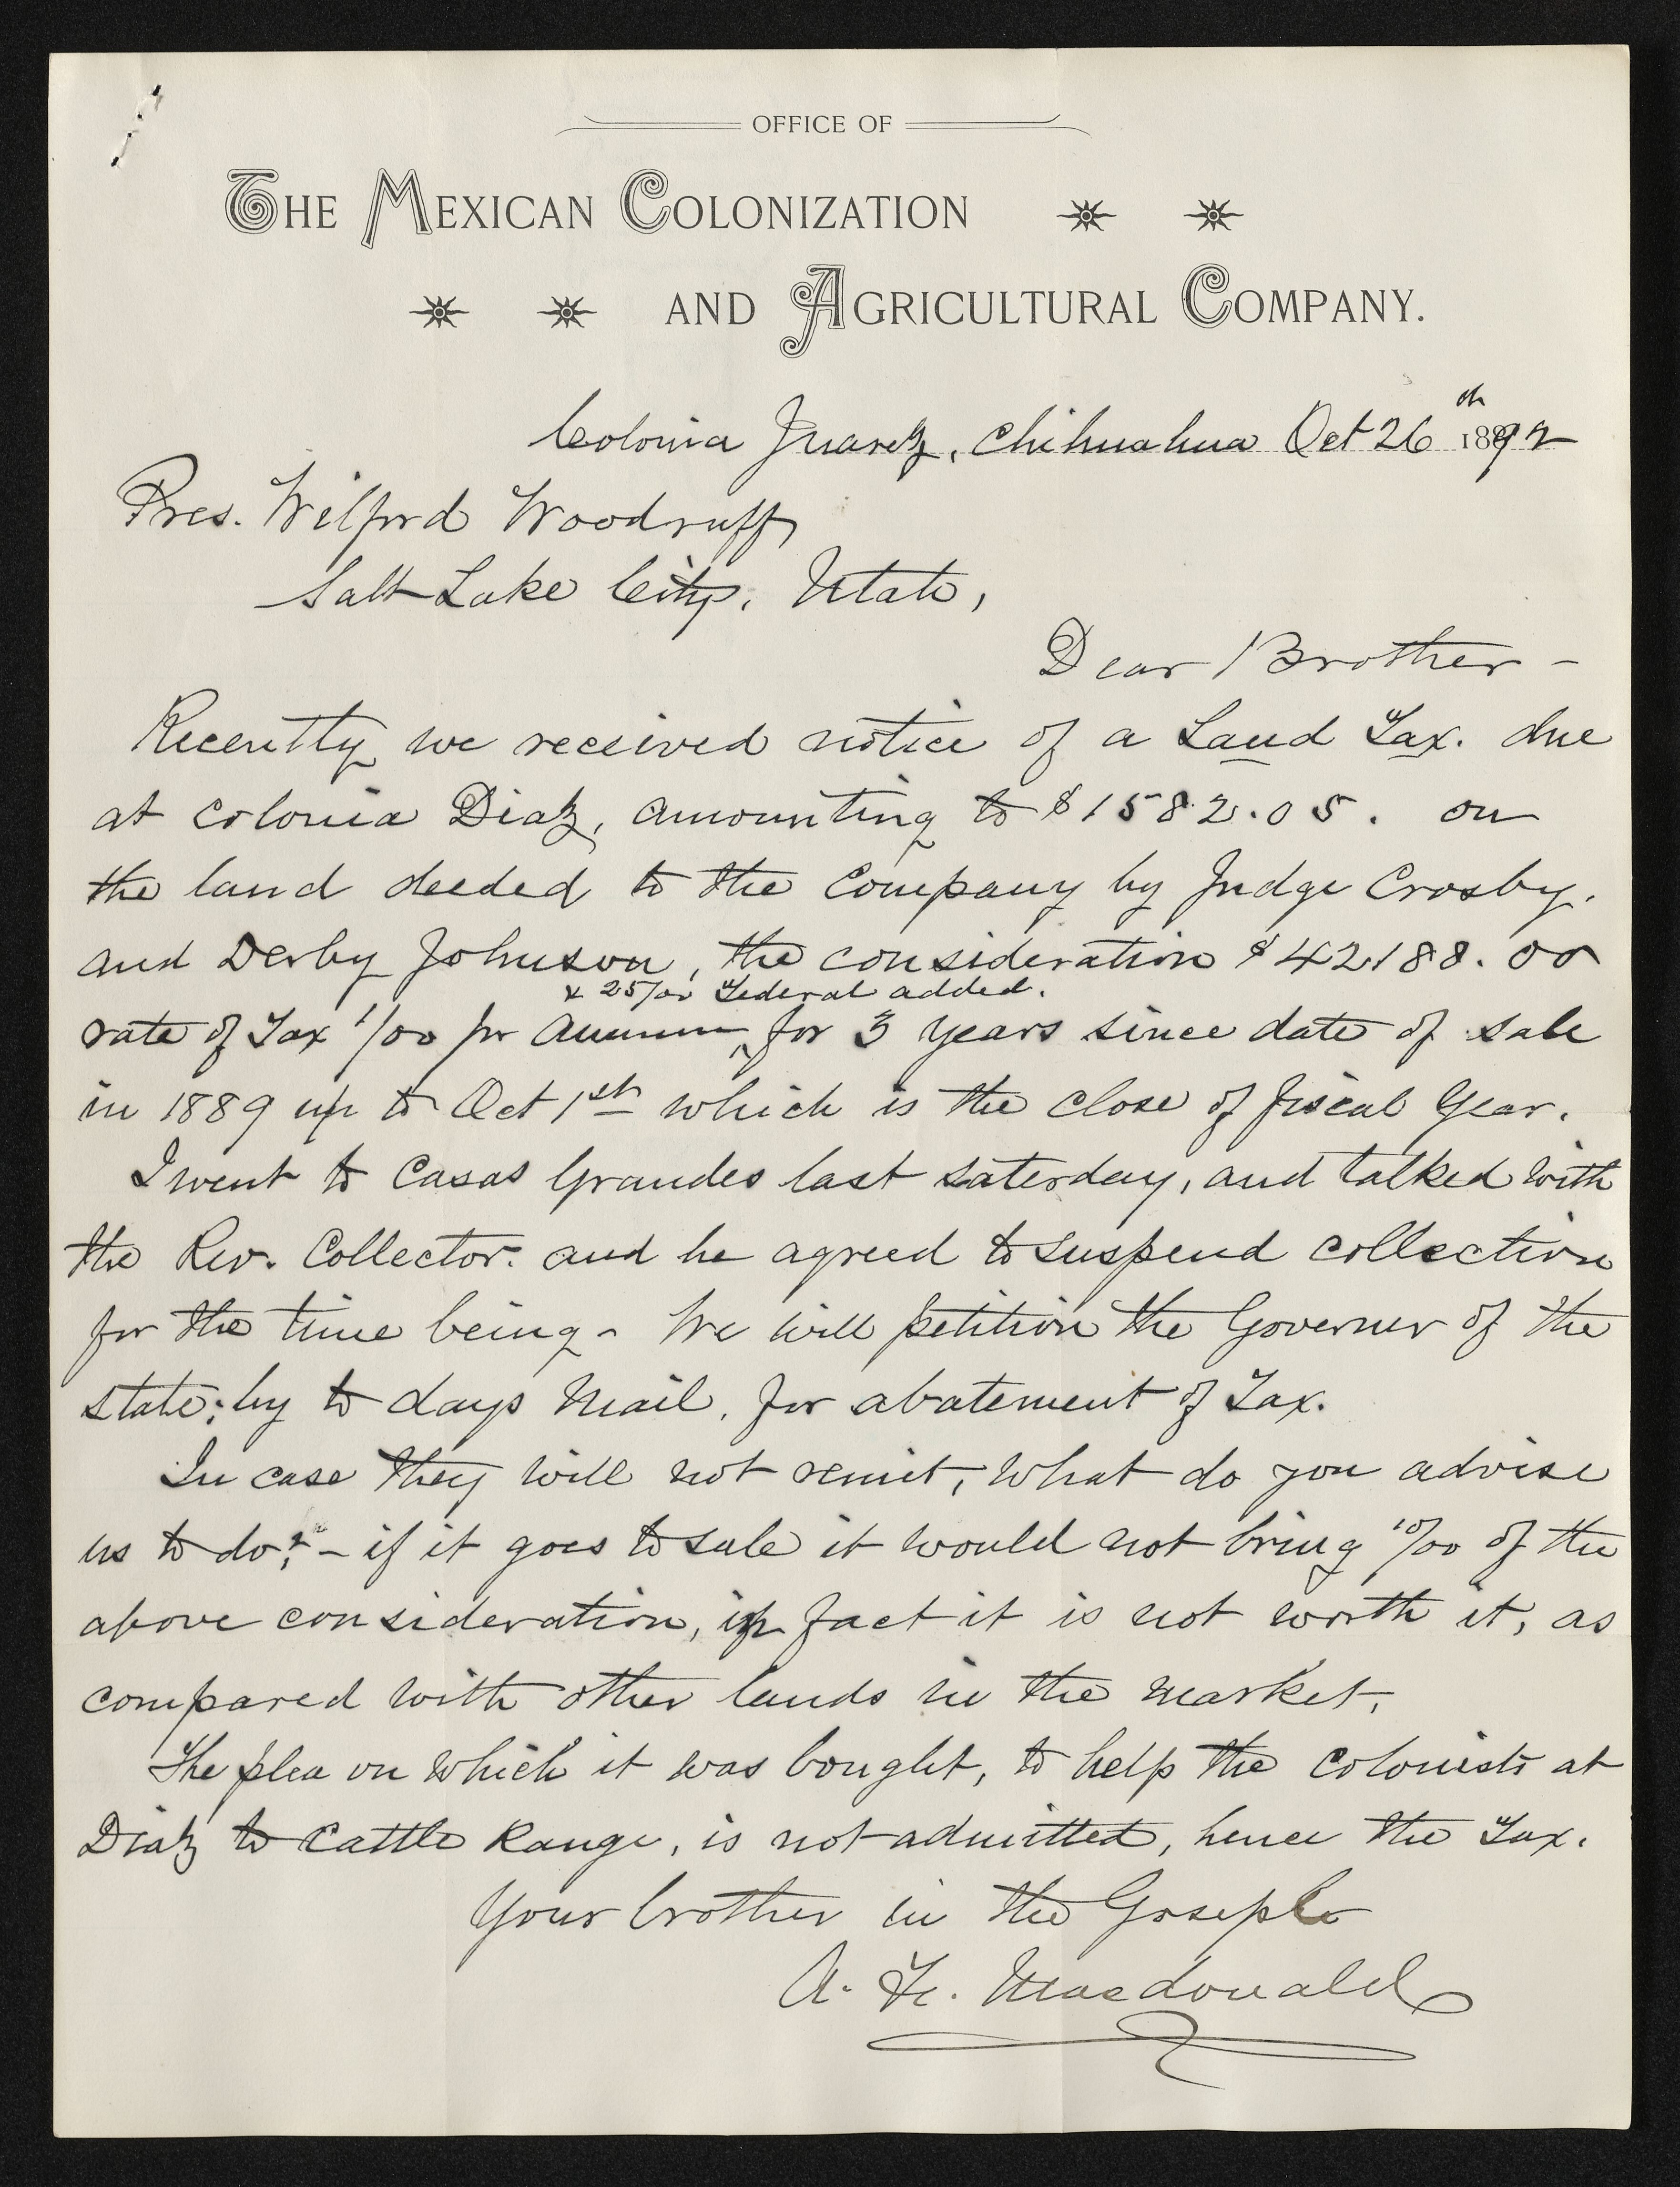 OFFICE OF
THE MEXICAN COLONIZATION
AND AGRICULTURAL COMPANY.
Colonia Juarez, Chihuahua Oct 26th 1892
Pres. Wilford Woodruff,
Salt Lake City, Utah,
Dear Brother -
Recently we received notice of a Land Tax. due
at Colonia Diaz, amounting to $1582.05. on
the land deeded to the Company by Judge Crosby.
and Derby Johnson, the consideration $42188.00
& 25/00 Federal added.
rate of Tax 1/00 pr Annum, for 3 years since date of sale
in 1889 up to Oct 1st which is the close of fiscal Year.
I went to Casas Grandes last saterday, and talked with
the Rev. Collector. and he agreed to suspend collection
for the time being - We will petition the Governer of the
state; by to days Mail, for abatement of Tax.
In case they will not remit, what do you advise
us to do? - if it goes to sale it would not bring 10/00 of the
above consideration, in fact it is not worth it, as
compared with other lands in the market,
The plea on which it was bought, to help the Colonists at
Diaz to Cattle Range, is not admitted, hence the Tax.
Your brother in the Gosepl
A. F. Macdonald